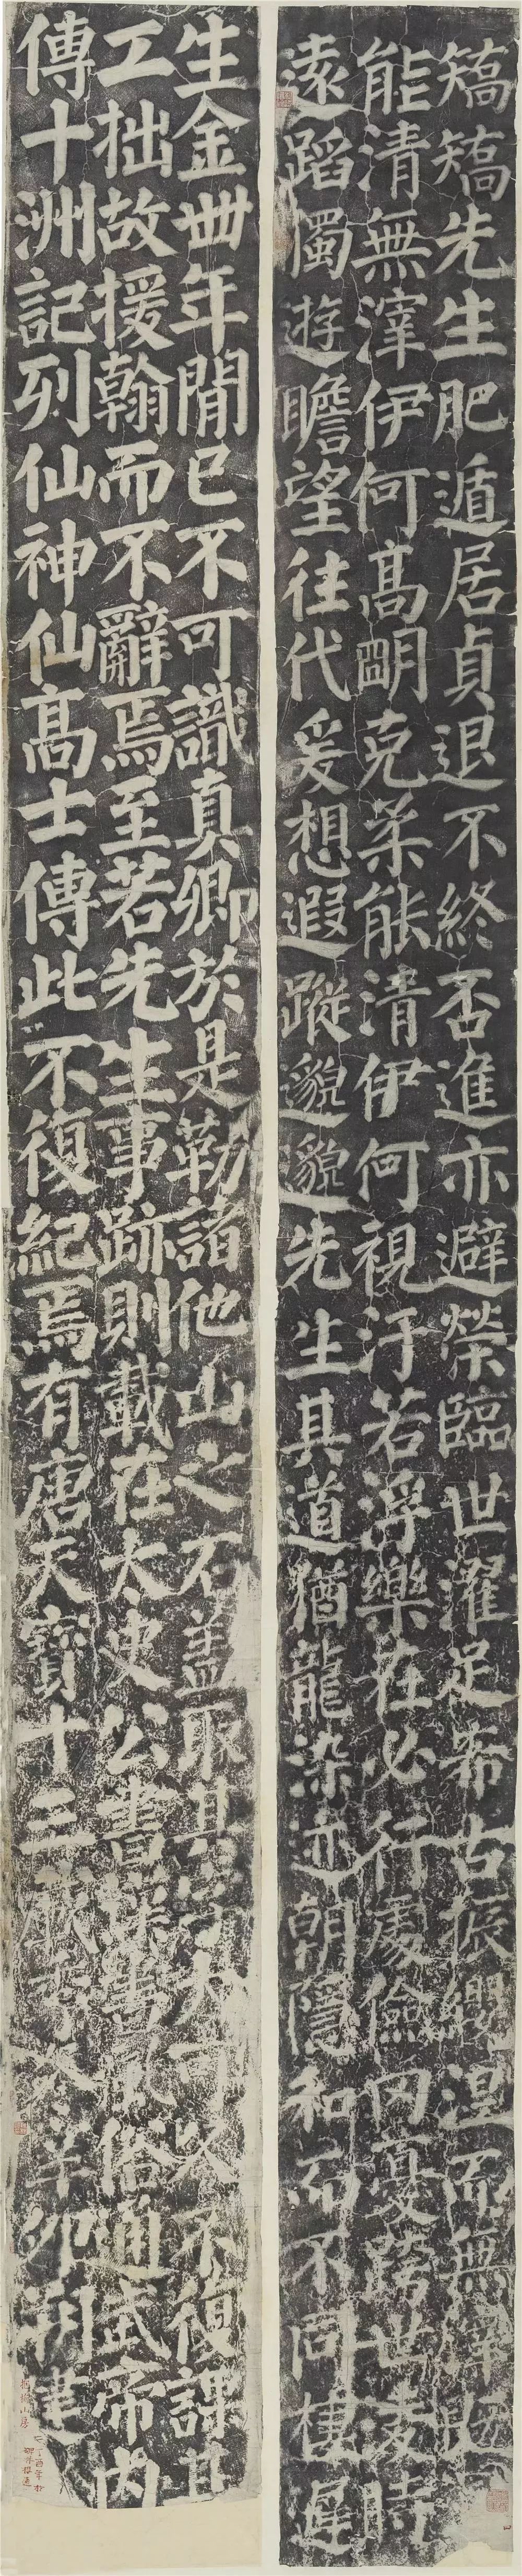 矯矯先生肥遁居貞退不終否進亦避榮臨世濯足希古振纓涅而無滓既
能清無滓伊何高明克柔能清伊何視汙若浮樂在必行處儉罔憂跨世凌時
遠蹈獨遊瞻望往代爰想遐蹤邈邈先生其道猶龍染迹朝隱和而不同棲遲
生金卌年間已不可識真卿於是勒諸他山之石蓋取其字大可久不復課其
工拙故援翰而不辭焉至若先生事跡則載在太史公書漢風俗通武帝內
傳十洲記列仙神仙高士傳此不復紀焉有唐天寶十三辛卯刻建